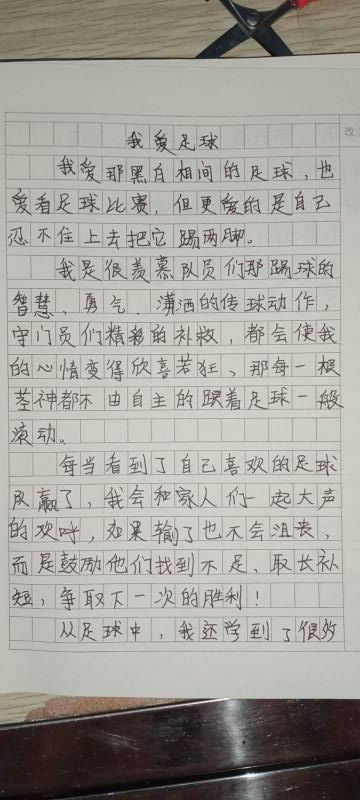 我爱足球
我爱那黑白相间的足球，也
爱看足球比赛，但更爱的是自己
忍不住上去把它踢两脚。
我是很羡慕队员们那踢球的
智慧、勇气、潇洒的传球动作，
守门员们精彩的补救，都会使我
的心情变得欣喜若狂、那每一根
茎神都不由自主的跟着足球一般
滚动。
每当看到了自己喜欢的足球
队赢了，我会和家人们一起大声
的欢呼，如果输了也不会沮丧，
而是鼓励他们找到不足、取长补
短，争取下一次的胜利！
从足球中，我还学到了很多
改